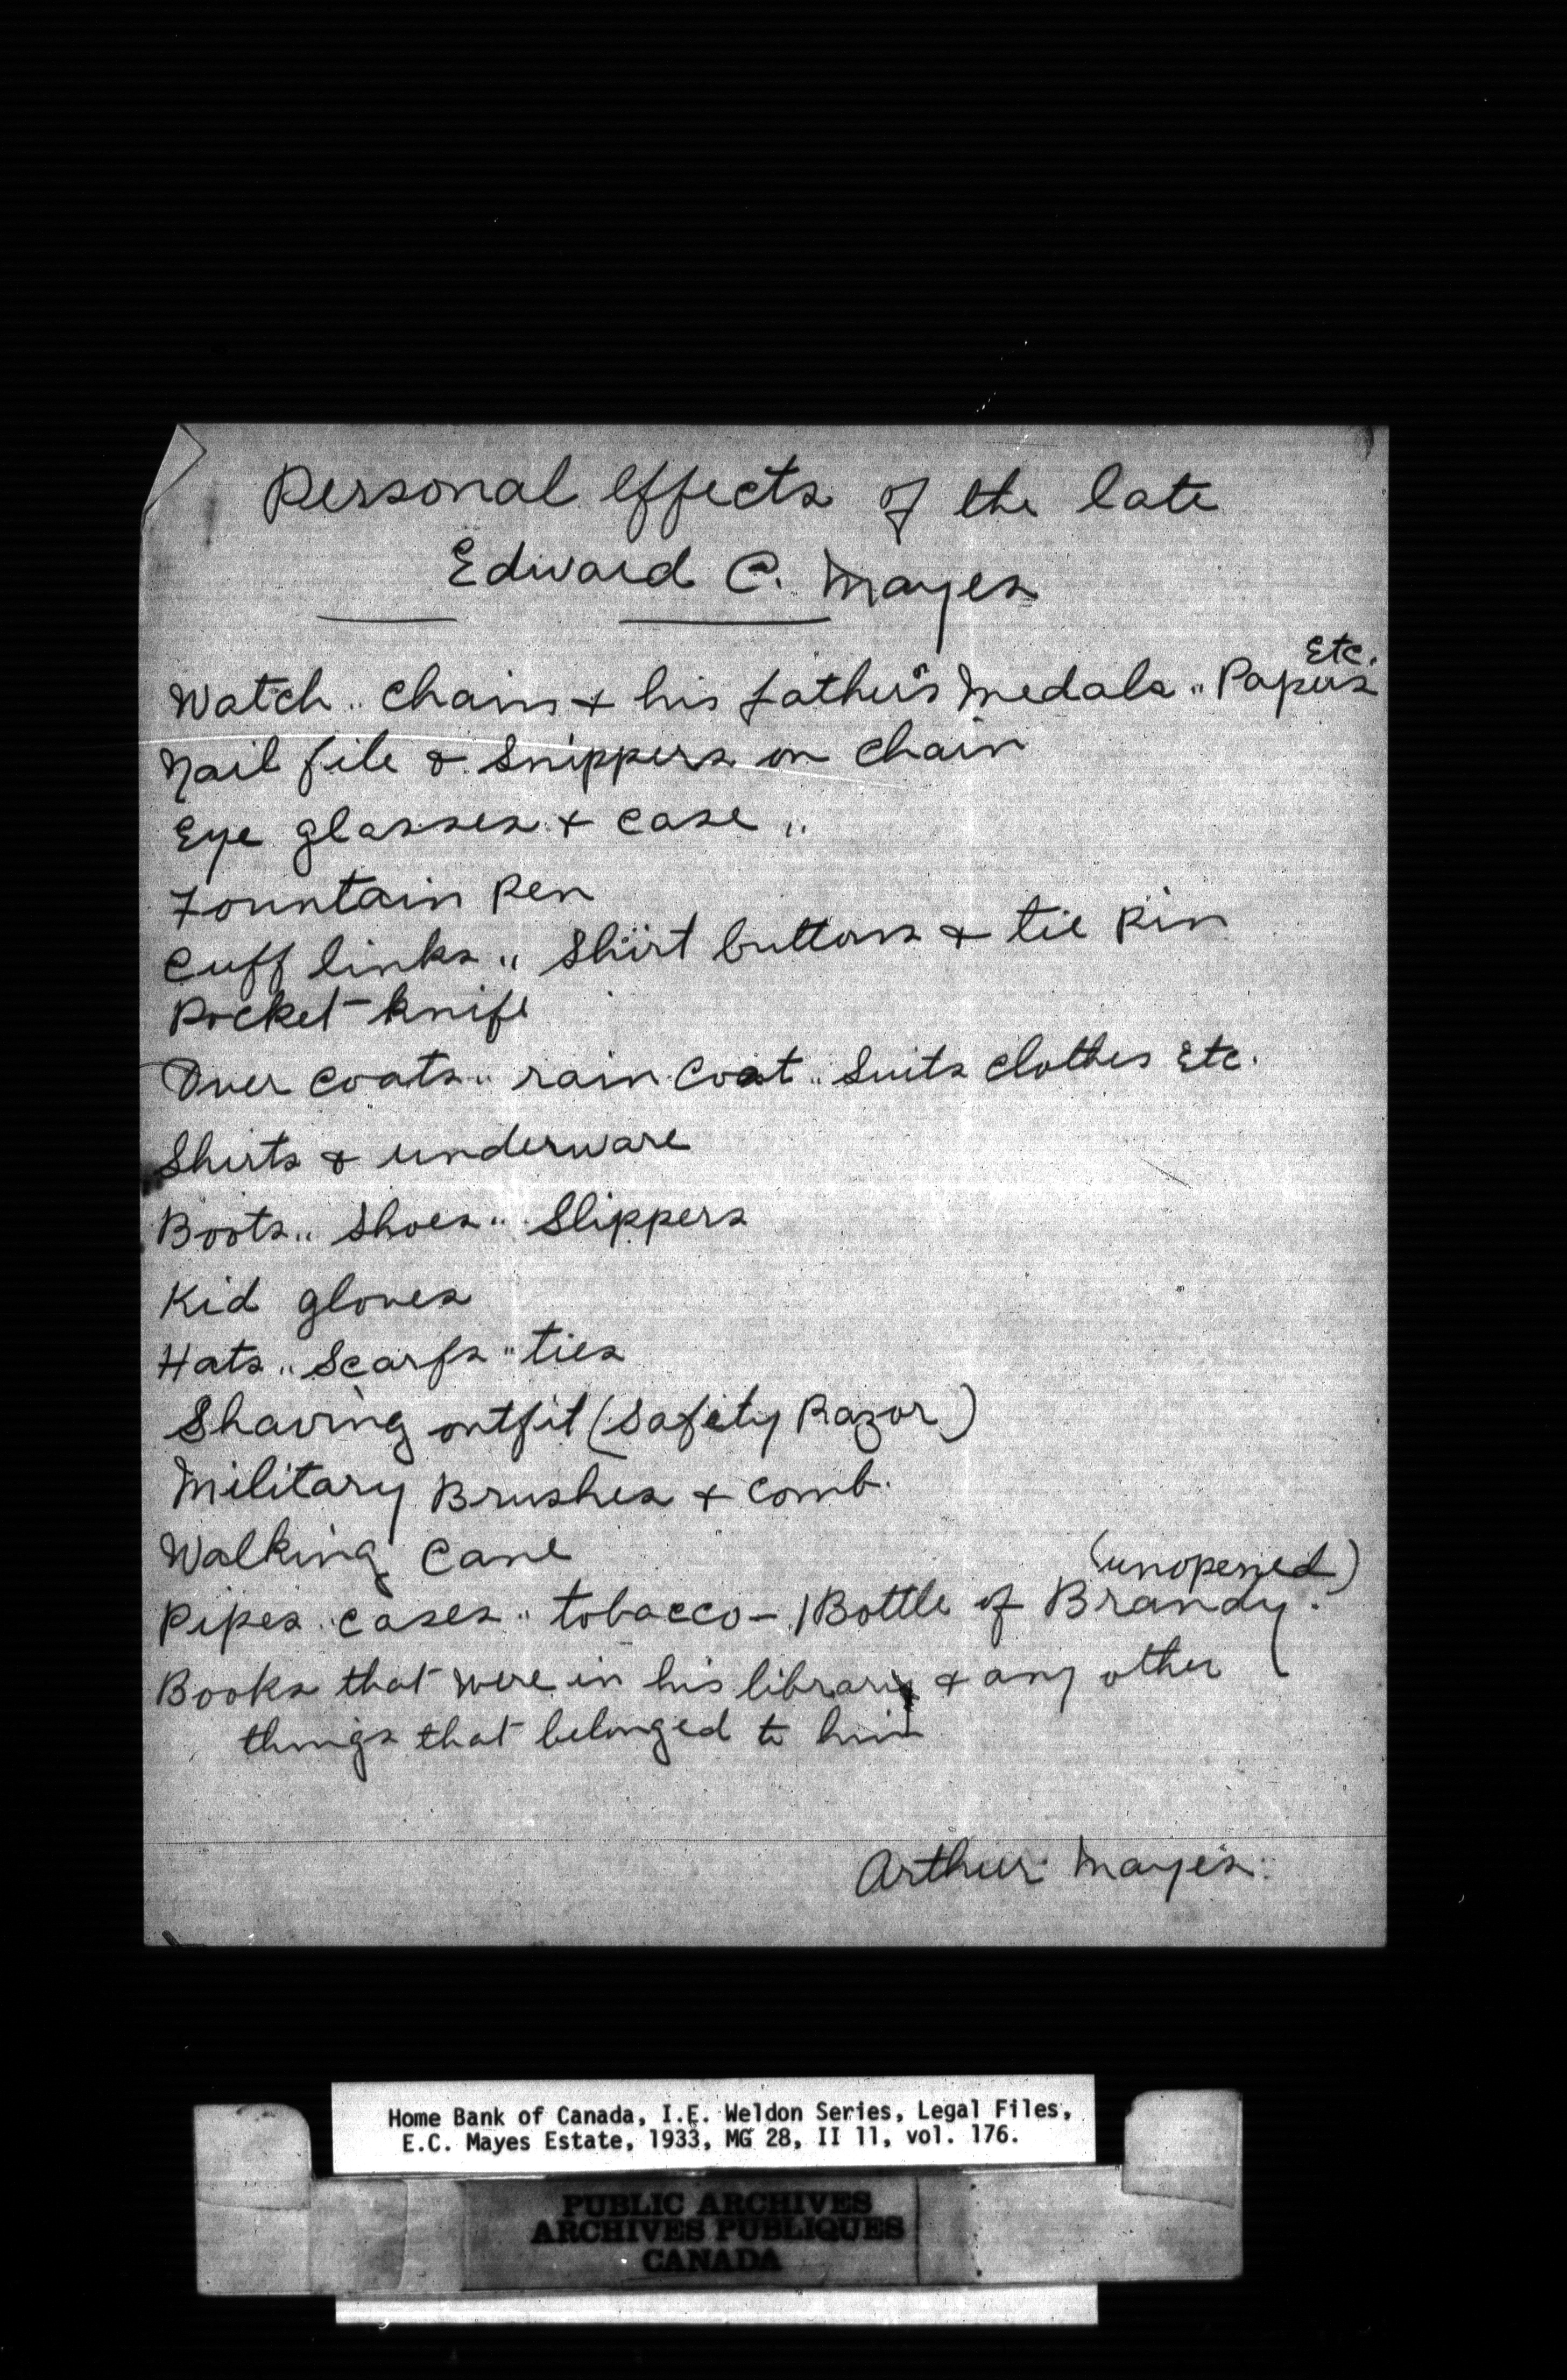 Personal effects of the late
Edward C. Mayes
Etc.
Watch „ chain & his father's Medals „ Papers
Nail file & Snippers on chain
Eye glasses & case „
Fountain Pen
Cuff links „ Shirt buttons & tie Pin
Pocket-knife
Over coats „ rain Coat „ Suits clothes Etc.
Shirts & underware
Boots „ Shoes „ Slippers
Kid gloves
Hats „ Scarfs „ ties
Shaving outfit (Safety Razor)
Military Brushes & comb.
Walking Cane
(unopened)
Pipes „ cases „ tobacco – 1 Bottle of Brandy.
Books that were in his library & any other
things that belonged to him
Arthur Mayes.
Home Bank of Canada, I.E. Weldon Series, Legal Files,
E.C. Mayes Estate, 1933, MG 28, II 11, vol. 176.
PUBLIC ARCHIVES
ARCHIVES PUBLIQUES
CANADA